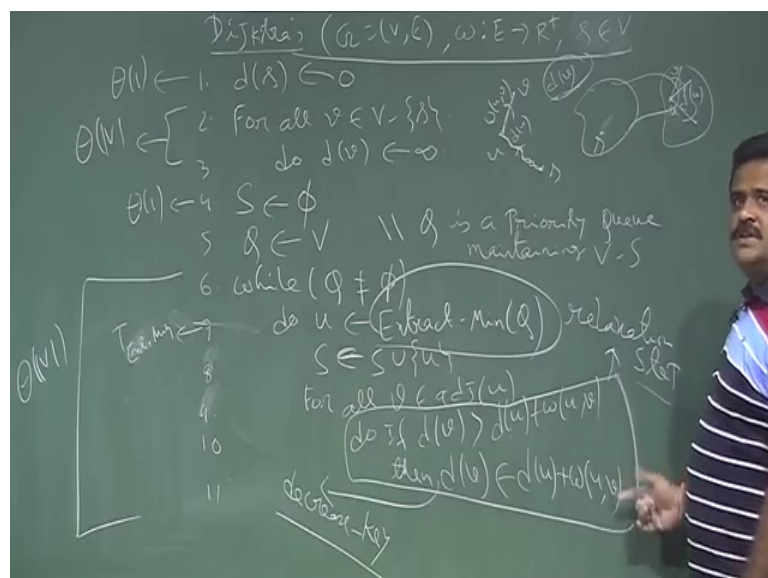 Dijkstra; (G=(V,E), ω:E→R⁺, s∈V
Θ(1) ← 1. d(s) ← 0
Θ(|V|) ← [ 2. For all v ∈ V-{s}
3 do d(v) ← ∞
Θ(1) ← 4 S ← ϕ
5 Q ← V \\ Q is a Priority Queue
maintaining V-S
6. while (Q ≠ ϕ)
7 do u ← Extract-Min(Q) relaxation
Step
8 S ← S∪{u}
9. For all v ∈ adj(u)
10 do if d(v) > d(u)+ω(u,v)
11 then, d(v) ← d(u)+ω(u,v)
decrease-key
Θ(|V|)
d(v)